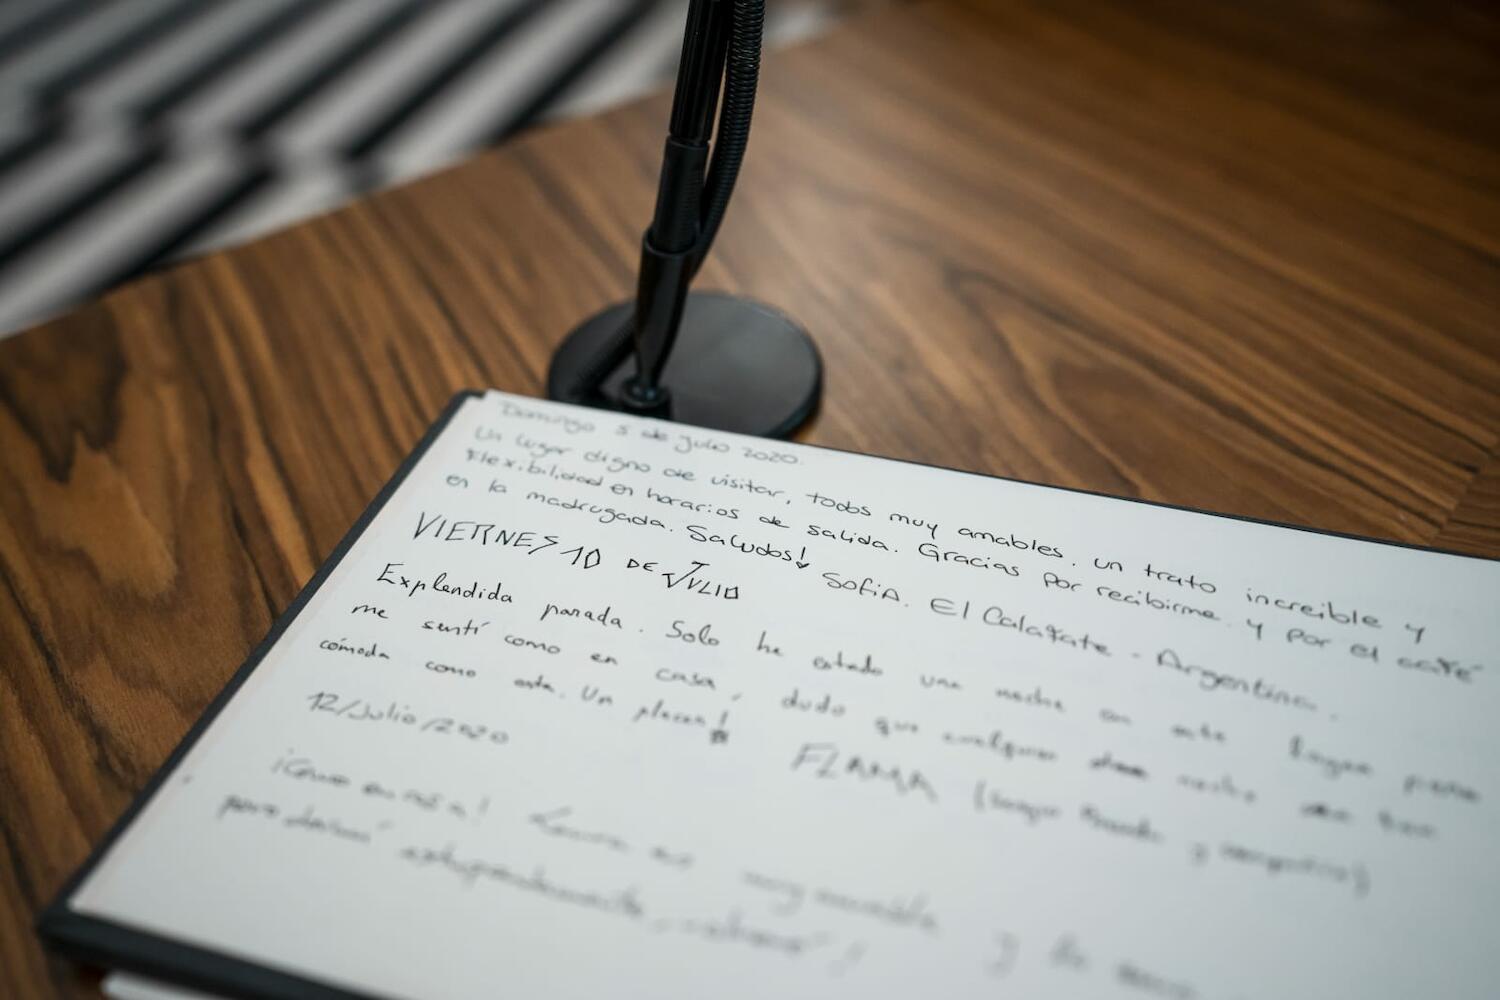 Domingo 5 de julio 2020.
Un lugar digno de visitar, todos muy amables. un trato increible y
flexibilidad en horarios de salida. Gracias por recibirme y por el café
en la madrugada. Saludos! Sofia. El Calafate - Argentina.
VIERNES 10 DE JULIO
Explendida parada. Solo he estado una noche en este lugar para
me sentí como en casa, dudo que cualquier otra noche sea tan
cómoda como esta. Un placer!
FLAMA
12/Julio/2020
¡Como en casa! muy amable y
para dormí estupendamente,